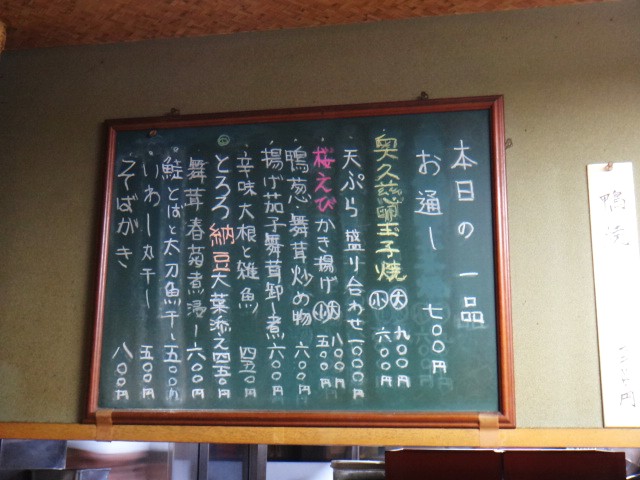 本日の一品
お通し 七〇〇円
奥久慈卵玉子焼 大 九〇〇円 小 六〇〇円
天ぷら盛り合わせ 一〇〇〇円
桜えびかき揚げ 大 八〇〇円 小 五〇〇円
鴨葱・舞茸炒め物 六〇〇円
揚げ茄子舞茸卸し煮 六〇〇円
辛味大根と雑魚 四五〇円
とろろ納豆大葉添え 四五〇円
舞茸春菊煮浸し 六〇〇円
鮭とばと太刀魚干し 五〇〇円
いわし丸干し 五〇〇円
そばがき 八〇〇円
鴨焼
円